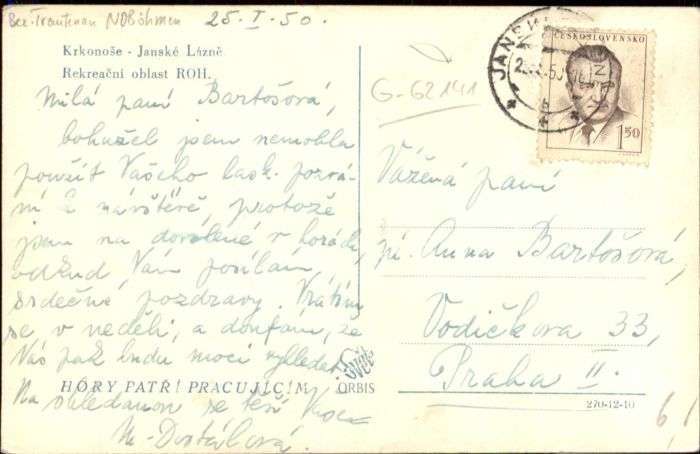 Bez. Trautenau NDBöhmen 25-I-50.
Krkonoše - Janské Lázně
Rekreační oblast ROH.
Milá paní Bartošová,
bohužel jsem nemohla
použít Vašeho lask. pozvá-
ní k návštěvě, protože
jsem na dovolené v horách,
odkud Vám posílám
srdečné pozdravy. Vrátím
se v neděli, a doufám, že
Vás pak budu moci vyhledat.
HÓRY PATŘÍ PRACUJÍCÍM
Na shledanou se těší
M. Dostálová.
ORBIS
G-62141
JANSK
ČESKOSLOVENSKO
1.50
Vážená paní
pí. Anna Bartošová,
Vodičkova 33,
Praha II.
270-12-10
6,